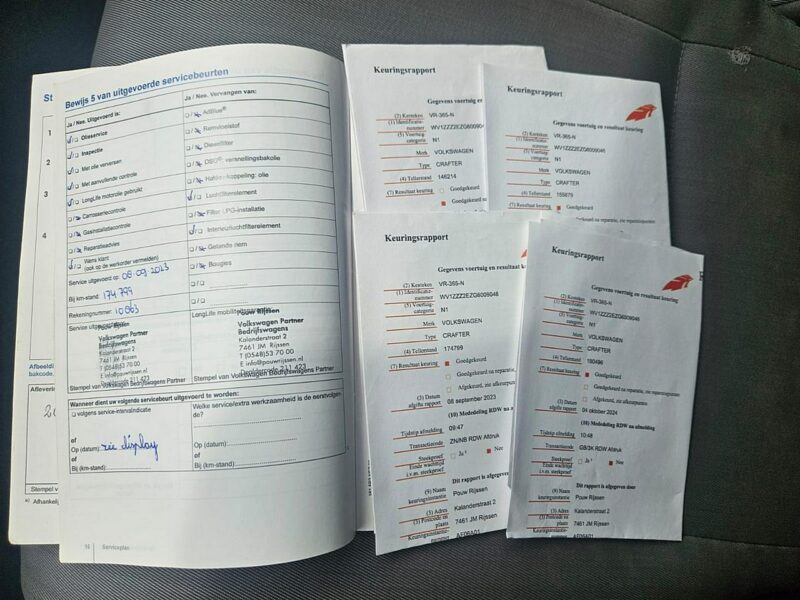 St
1
2
3
4
Afbeeldi
bakcode.
Aflever
Stempel v
Afhankelij
Bewijs 5 van uitgevoerde servicebeurten
Ja / Nee. Uitgevoerd is:
Olieservice
Inspectie
Met olie verversen
Met aanvullende controle
LongLife motorolie gebruikt
Carrosseriecontrole
Gasinstallatiecontrole
Reparatieadvies
Wens klant
(ook op de werkorder vermelden)
Service uitgevoerd op: 08.09.2023
Bij km-stand: 174 799
Rekeningnummer: 10863
Service uitgevoerd
Pouw Rijssen
Volkswagen Partner
Bedrijfswagens
Kalanderstraat 2
7461 JM Rijssen
T (0548)53 70 00
E info@pouwrijssen.nl
Stempel van Volkswagen Bedrijfswagens Partner
Ja / Nee. Vervangen van:
AdBlue®
Remvloeistof
Dieselfilter
DSG®-versnellingsbakolie
Haldex-koppeling: olie
Luchtfilterelement
Filter LPG-installatie
Interieurluchtfilterelement
Getande riem
Bougies
LongLife mobiliteitsgarantie
Pouw Rijssen
Volkswagen Partner
Bedrijfswagens
Kalanderstraat 2
7461 JM Rijssen
T (0548)53 70 00
E info@pouwrijssen.nl
Stempel van Volkswagen Bedrijfswagens Partner
Wanneer dient uw volgende servicebeurt uitgevoerd te worden:
volgens service-intervalindicatie
of
Op (datum): zie display
of
Bij (km-stand):
Welke service/extra werkzaamheid is de eerstvolgen-
de?
Op (datum):
of
Bij (km-stand):
Serviceplan
Keuringsrapport
Gegevens voertuig en
(2) Kenteken VR-365-N
(1) Identificatie-
nummer WV1ZZZ2EZG6009046
(5) Voertuig-
categorie N1
Merk VOLKSWAGEN
Type CRAFTER
(4) Tellerstand 146214
(7) Resultaat keuring Goedgekeurd
Goedgekeurd
Keuringsrapport
Gegevens voertuig en resultaat keuring
(2) Kenteken VR-365-N
(1) Identificatie-
nummer WV1ZZZ2EZG6009046
(5) Voertuig-
categorie N1
Merk VOLKSWAGEN
Type CRAFTER
(4) Tellerstand 155875
(7) Resultaat keuring Goedgekeurd
Goedgekeurd na reparatie, zie reparatiepunten
Keuringsrapport
Gegevens voertuig en resultaat ke
(2) Kenteken VR-365-N
(1) Identificatie-
nummer WV1ZZZ2EZG6009046
(5) Voertuig-
categorie N1
Merk VOLKSWAGEN
Type CRAFTER
(4) Tellerstand 174799
(7) Resultaat keuring Goedgekeurd
Goedgekeurd na reparatie, zie
Afgekeurd, zie afkeurpunten
(3) Datum
afgifte rapport 08 september 2023
(10) Mededeling RDW na
Tijdstip afmelding 09:47
Transactiecode ZN/NB RDW Aftruk
Steekproef Ja Nee
Einde wachttijd
i.v.m. steekproef
Dit rapport is afgegeven
(9) Naam
keuringsinstantie Pouw Rijssen
(3) Adres Kalanderstraat 2
(3) Postcode en
plaats 7461 JM Rijssen
Keuringsinstan-
Keuringsrapport
Gegevens voertuig en resultaat keuring
(2) Kenteken VR-365-N
(1) Identificatie-
nummer WV1ZZZ2EZG6009046
(5) Voertuig-
categorie N1
Merk VOLKSWAGEN
Type CRAFTER
(4) Tellerstand 180496
(7) Resultaat keuring Goedgekeurd
Goedgekeurd na reparatie, zie reparatiepunten
Afgekeurd, zie afkeurpunten
(3) Datum
afgifte rapport 04 oktober 2024
(10) Mededeling RDW na afmelding
Tijdstip afmelding 10:48
Transactiecode GB/3K RDW Aftruk
Steekproef Ja Nee
Einde wachttijd
i.v.m. steekproef
Dit rapport is afgegeven door
(9) Naam
keuringsinstantie Pouw Rijssen
(3) Adres Kalanderstraat 2
(3) Postcode en
plaats 7461 JM Rijssen
Keuringsinstan-